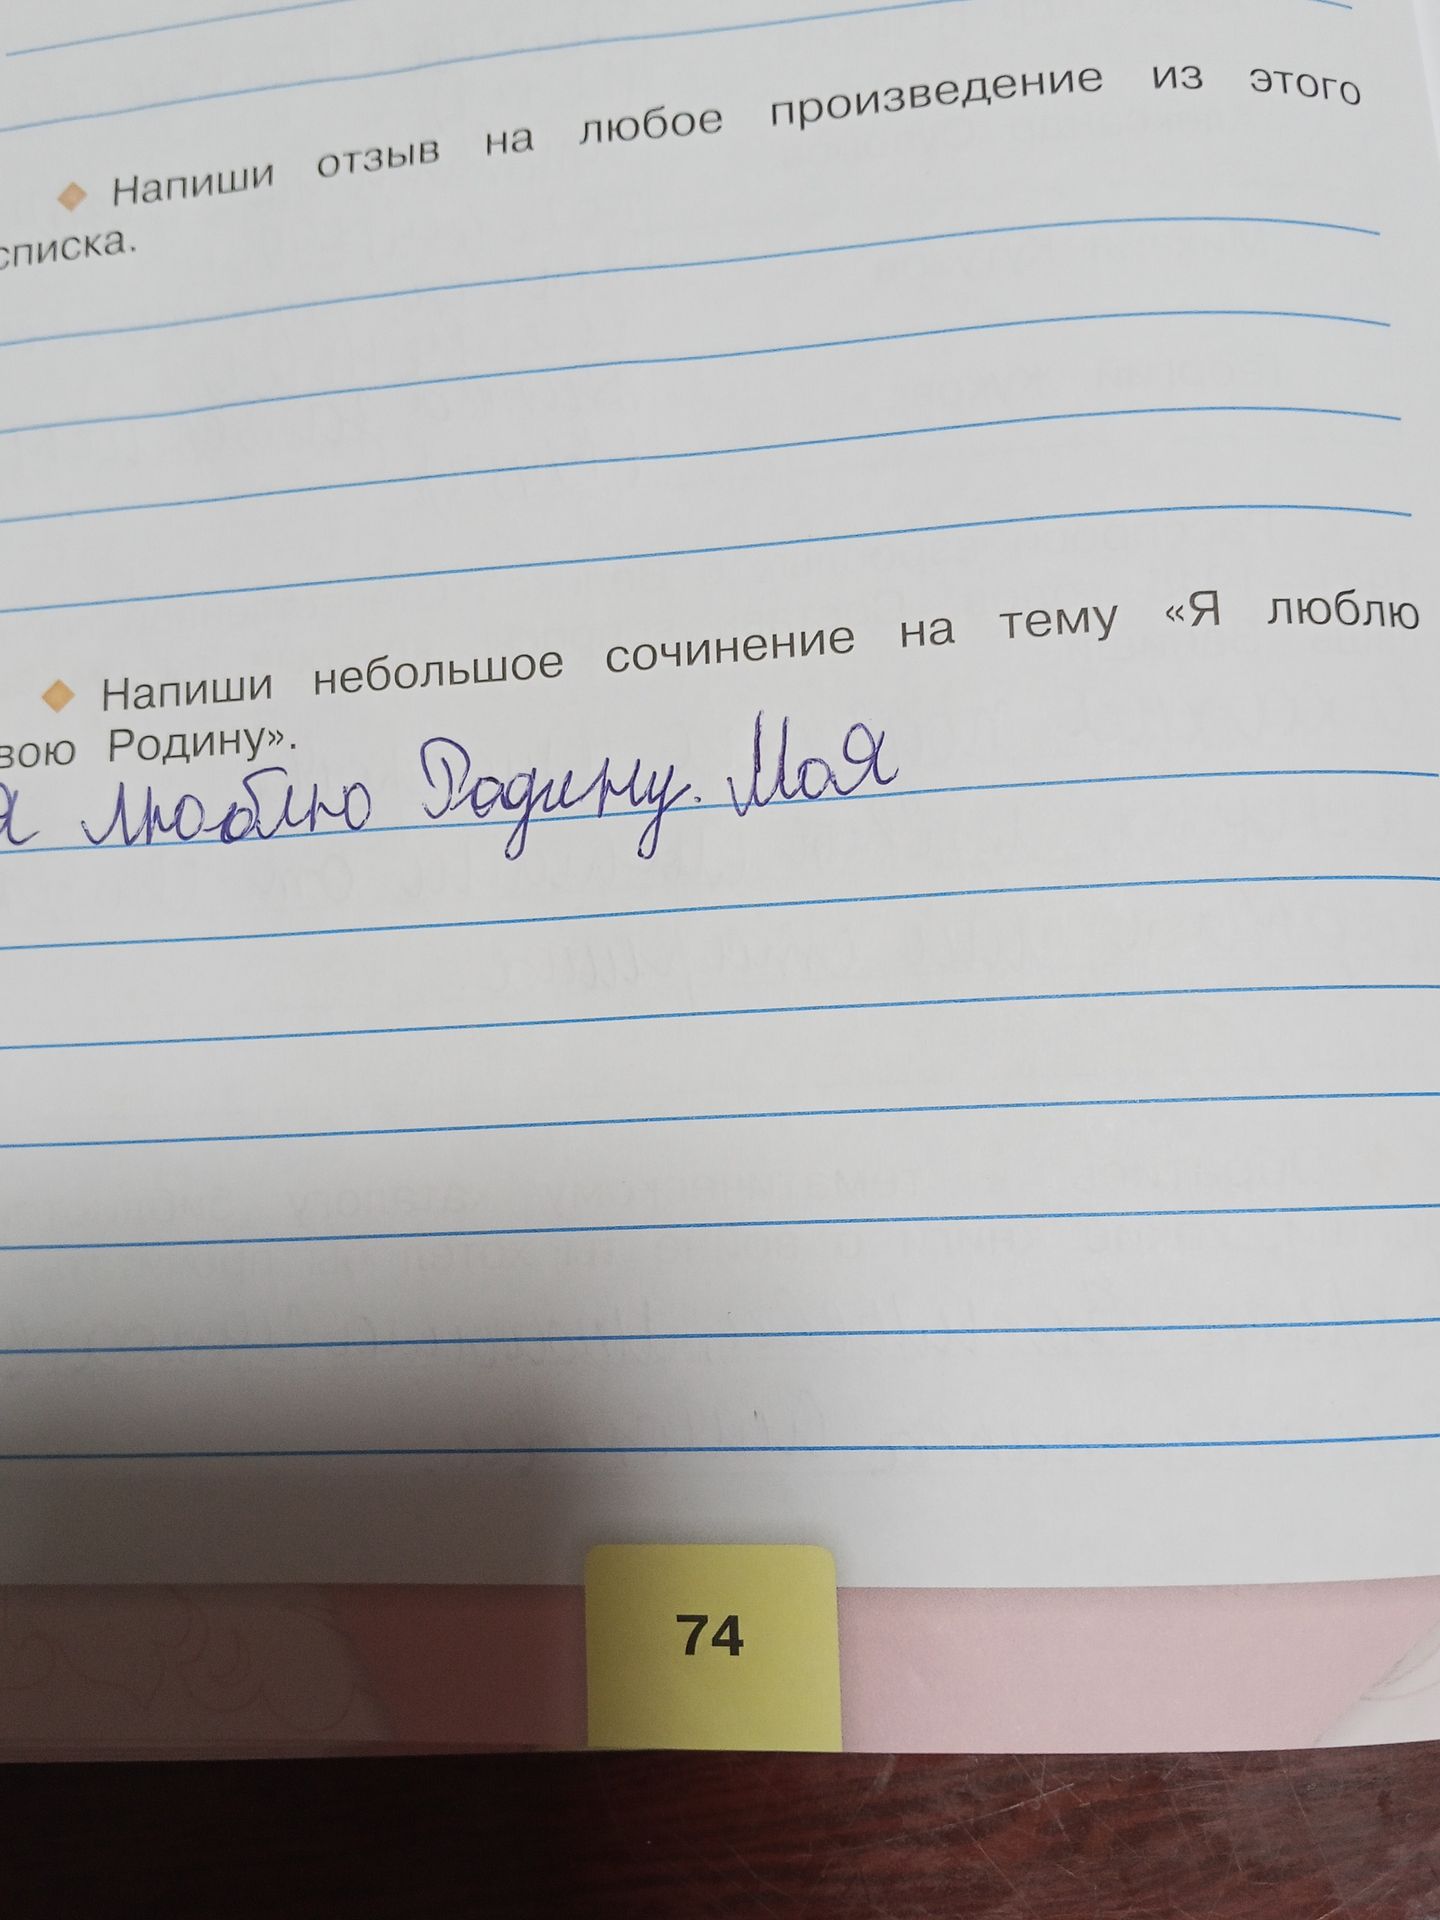 Напиши отзыв на любое произведение из этого
списка.
Напиши небольшое сочинение на тему «Я люблю
свою Родину».
Я люблю Родину. Моя
74